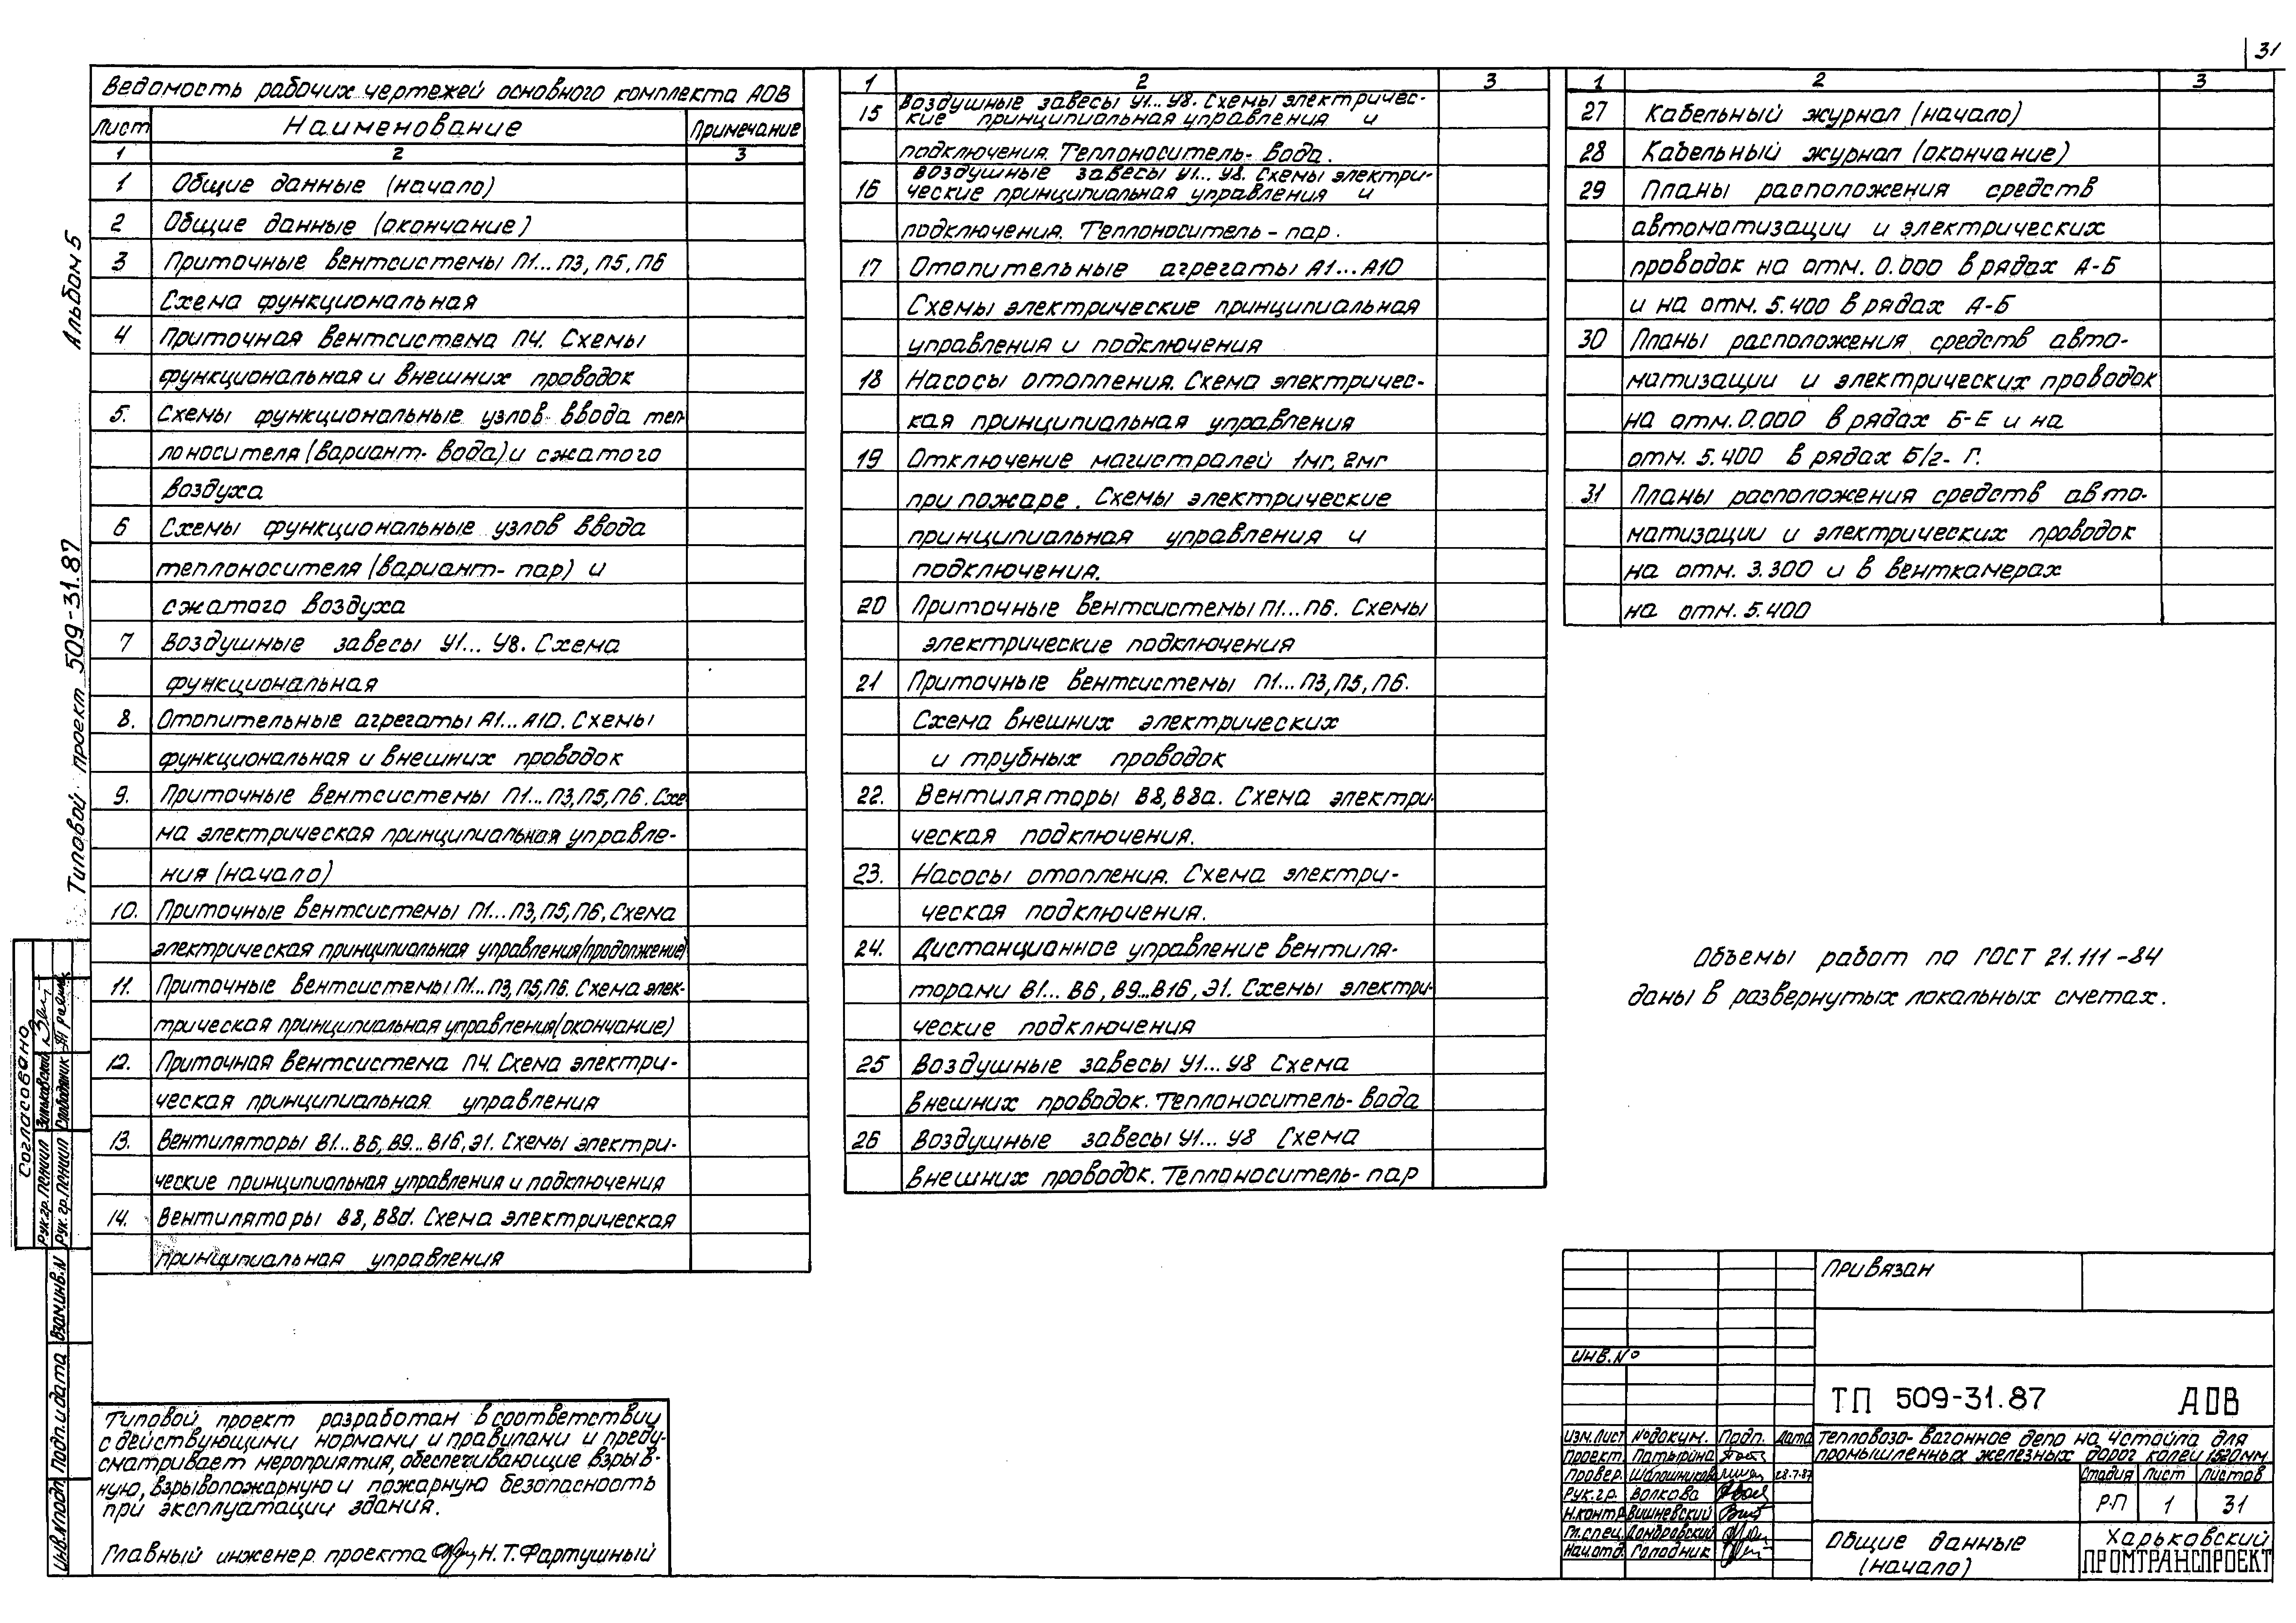 31
Ведомость рабочих чертежей основного комплекта АОВ
Лист Наименование Примечание
1 2 3
1 Общие данные (начало)
2 Общие данные (окончание)
3 Приточные вентсистемы П1...П3, П5, П6
Схема функциональная
4 Приточная вентсистема П4. Схемы
функциональная и внешних проводок
5. Схемы функциональные узлов ввода теп-
лоносителя (вариант-вода) и сжатого
воздуха
6 Схемы функциональные узлов ввода
теплоносителя (вариант-пар) и
сжатого воздуха
7 Воздушные завесы У1...У8. Схема
функциональная
8. Отопительные агрегаты А1...А10. Схемы
функциональная и внешних проводок
9. Приточные вентсистемы П1...П3, П5, П6. Схе-
ма электрическая принципиальная управле-
ния (начало)
10. Приточные вентсистемы П1...П3, П5, П6. Схема
электрическая принципиальная управления (продолжение)
11. Приточные вентсистемы П1...П3, П5, П6. Схема элек-
трическая принципиальная управления (окончание)
12. Приточная вентсистема П4. Схема электри-
ческая принципиальная управления
13. Вентиляторы В1...В6, В9...В16, Э1. Схемы электри-
ческие принципиальная управления и подключения
14. Вентиляторы В8, В8а. Схема электрическая
принципиальная управления
1 2 3
15 Воздушные завесы У1...У8. Схемы электричес-
кие принципиальная управления и
подключения. Теплоноситель-вода.
16 Воздушные завесы У1...У8. Схемы электри-
ческие принципиальная управления и
подключения. Теплоноситель-пар.
17 Отопительные агрегаты А1...А10
Схемы электрические принципиальная
управления и подключения
18 Насосы отопления. Схема электричес-
кая принципиальная управления
19 Отключение магистралей 1мг, 2мг
при пожаре. Схемы электрические
принципиальная управления и
подключения.
20 Приточные вентсистемы П1...П6. Схемы
электрические подключения
21 Приточные вентсистемы П1...П3, П5, П6.
Схема внешних электрических
и трубных проводок
22. Вентиляторы В8, В8а. Схема электри-
ческая подключения.
23. Насосы отопления. Схема электри-
ческая подключения.
24. Дистанционное управление вентиля-
торами В1...В6, В9...В16, Э1. Схемы электри-
ческие подключения
25 Воздушные завесы У1...У8 Схема
внешних проводок. Теплоноситель-вода
26 Воздушные завесы У1...У8 Схема
внешних проводок. Теплоноситель-пар
1 2 3
27 Кабельный журнал (начало)
28 Кабельный журнал (окончание)
29 Планы расположения средств
автоматизации и электрических
проводок на отм. 0.000 в рядах А-Б
и на отм. 5.400 в рядах А-Б
30 Планы расположения средств авто-
матизации и электрических проводок
на отм. 0.000 в рядах Б-Е и на
отм. 5.400 в рядах Б/2-Г.
31 Планы расположения средств авто-
матизации и электрических проводок
на отм. 3.300 и в венткамерах
на отм. 5.400
Объемы работ по ГОСТ 21.111-84
даны в развернутых локальных сметах.
Типовой проект разработан в соответствии
с действующими нормами и правилами и преду-
сматривает мероприятия, обеспечивающие взрыв-
ную, взрывопожарную и пожарную безопасность
при эксплуатации здания.
Главный инженер проекта Н.Т. Фартушный
Альбом 5
Типовой проект 509-31.87
Согласовано
Рук.гр. Слободяник
Взам.инв.N
Подп. и дата
Инв.N подл.
Привязан
Инв.№
ТП 509-31.87 АОВ
Изм. Лист №докум. Подп. Дата
Проект. Патырина
Провер. Шапошникова 28.7.87
Рук.гр. Волкова
Н.контр. Вишневский
Гл.спец. Домбровский
Нач.отд. Голодник
Тепловозо-вагонное депо на 4 стойла для
промышленных железных дорог колеи 1520мм
Стадия Лист Листов
Р.П 1 31
Общие данные
(начало)
Харьковский
ПРОМТРАНСПРОЕКТ